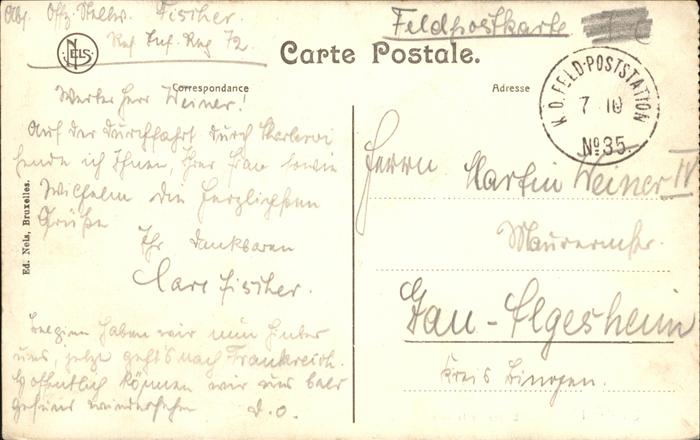 Abs. Offz. Stellv. Fischer.
Res. Inf. Reg 72.
Feldpostkarte
NELS
Carte Postale.
Correspondance
Adresse
K.D. FELD-POSTSTATION
7 10
No 35.
Werter Herr Weiner!
Auf der Durchfahrt durch Charleroi
sende ich Ihnen, Ihrer Frau sowie
Wilhelm die herzlichsten
Grüße
Ihr dankbarer
Carl Fischer.
Belgien haben wir nun hinter
uns, jetzt geht's nach Frankreich.
Hoffentlich können wir uns bald
gesund wiedersehen D.O.
Herrn Martin Weiner IV
Maurermstr.
Gau-Algesheim
Kreis Bingen.
Ed. Nels, Bruxelles.